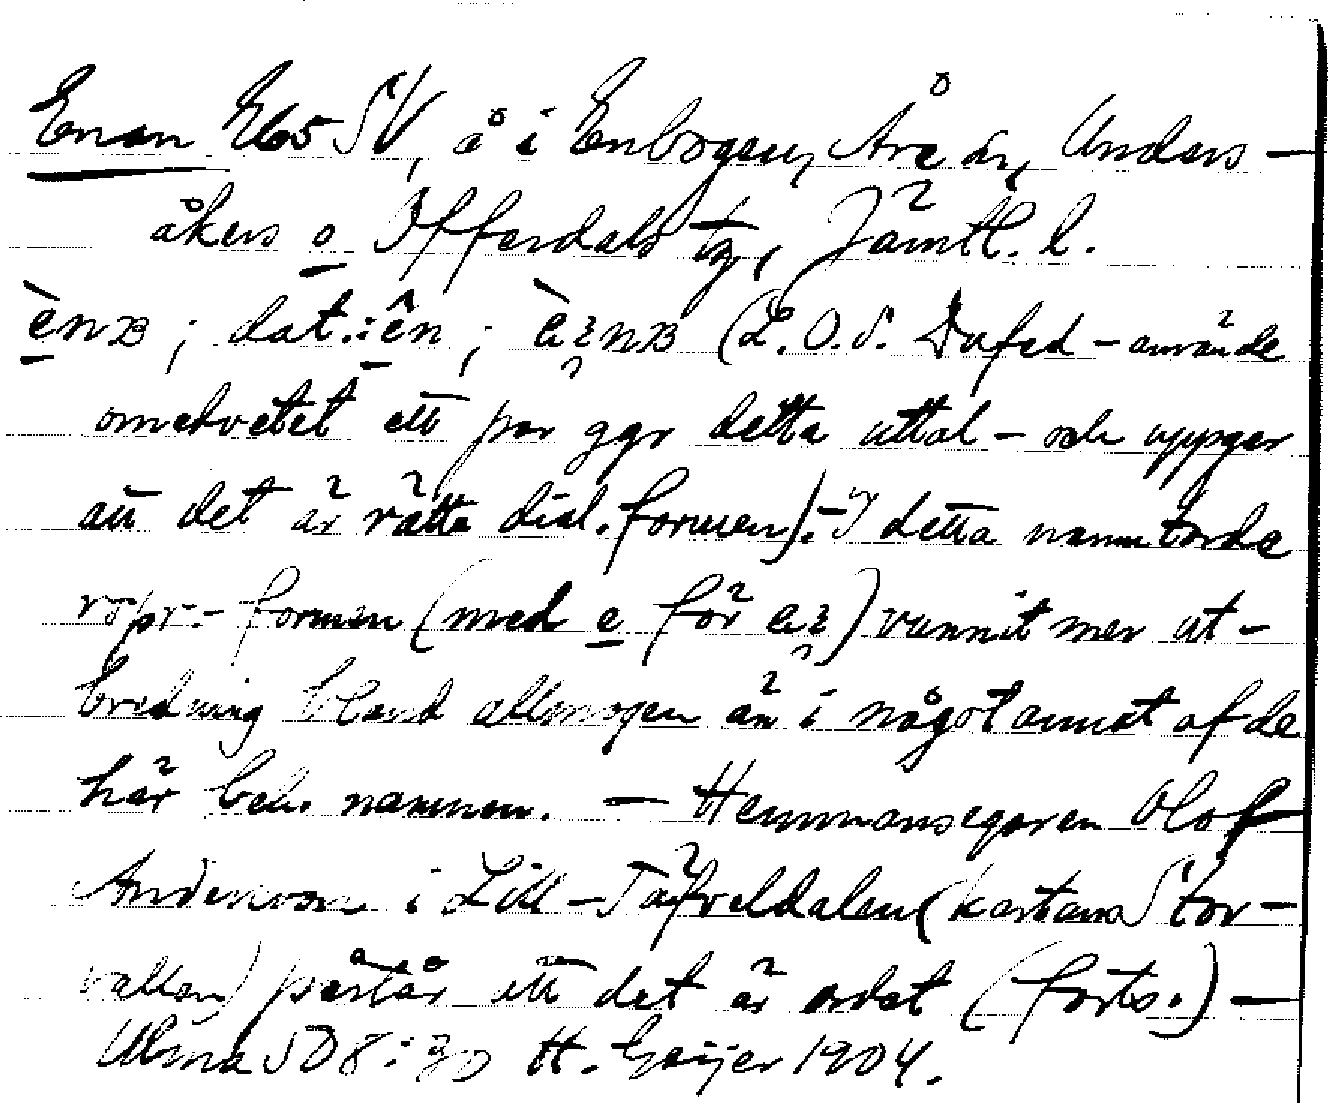 Enan E65 SV, å i Enbogen, Åre sn, Unders-
åkers o Offerdals tg, Jämtl. l.
ènʙ ; dat.: ên ; (L.O.S. Dufed - använde
omedvetet ett par ggr detta uttal - och uppger
att det är rätta dial. formen). - I detta namn torde
rspr.- formen (med e för ) vunnit mer ut-
bredning bland allmogen än i något annat af de
här beh. namnen. — Hemmansegaren Olof
Andersson i Lill-Täfveldalen (kartans Stor-
vallen) påstår att det är ordet (forts.) —
Ulma SD8:30 H. Geijer 1904.